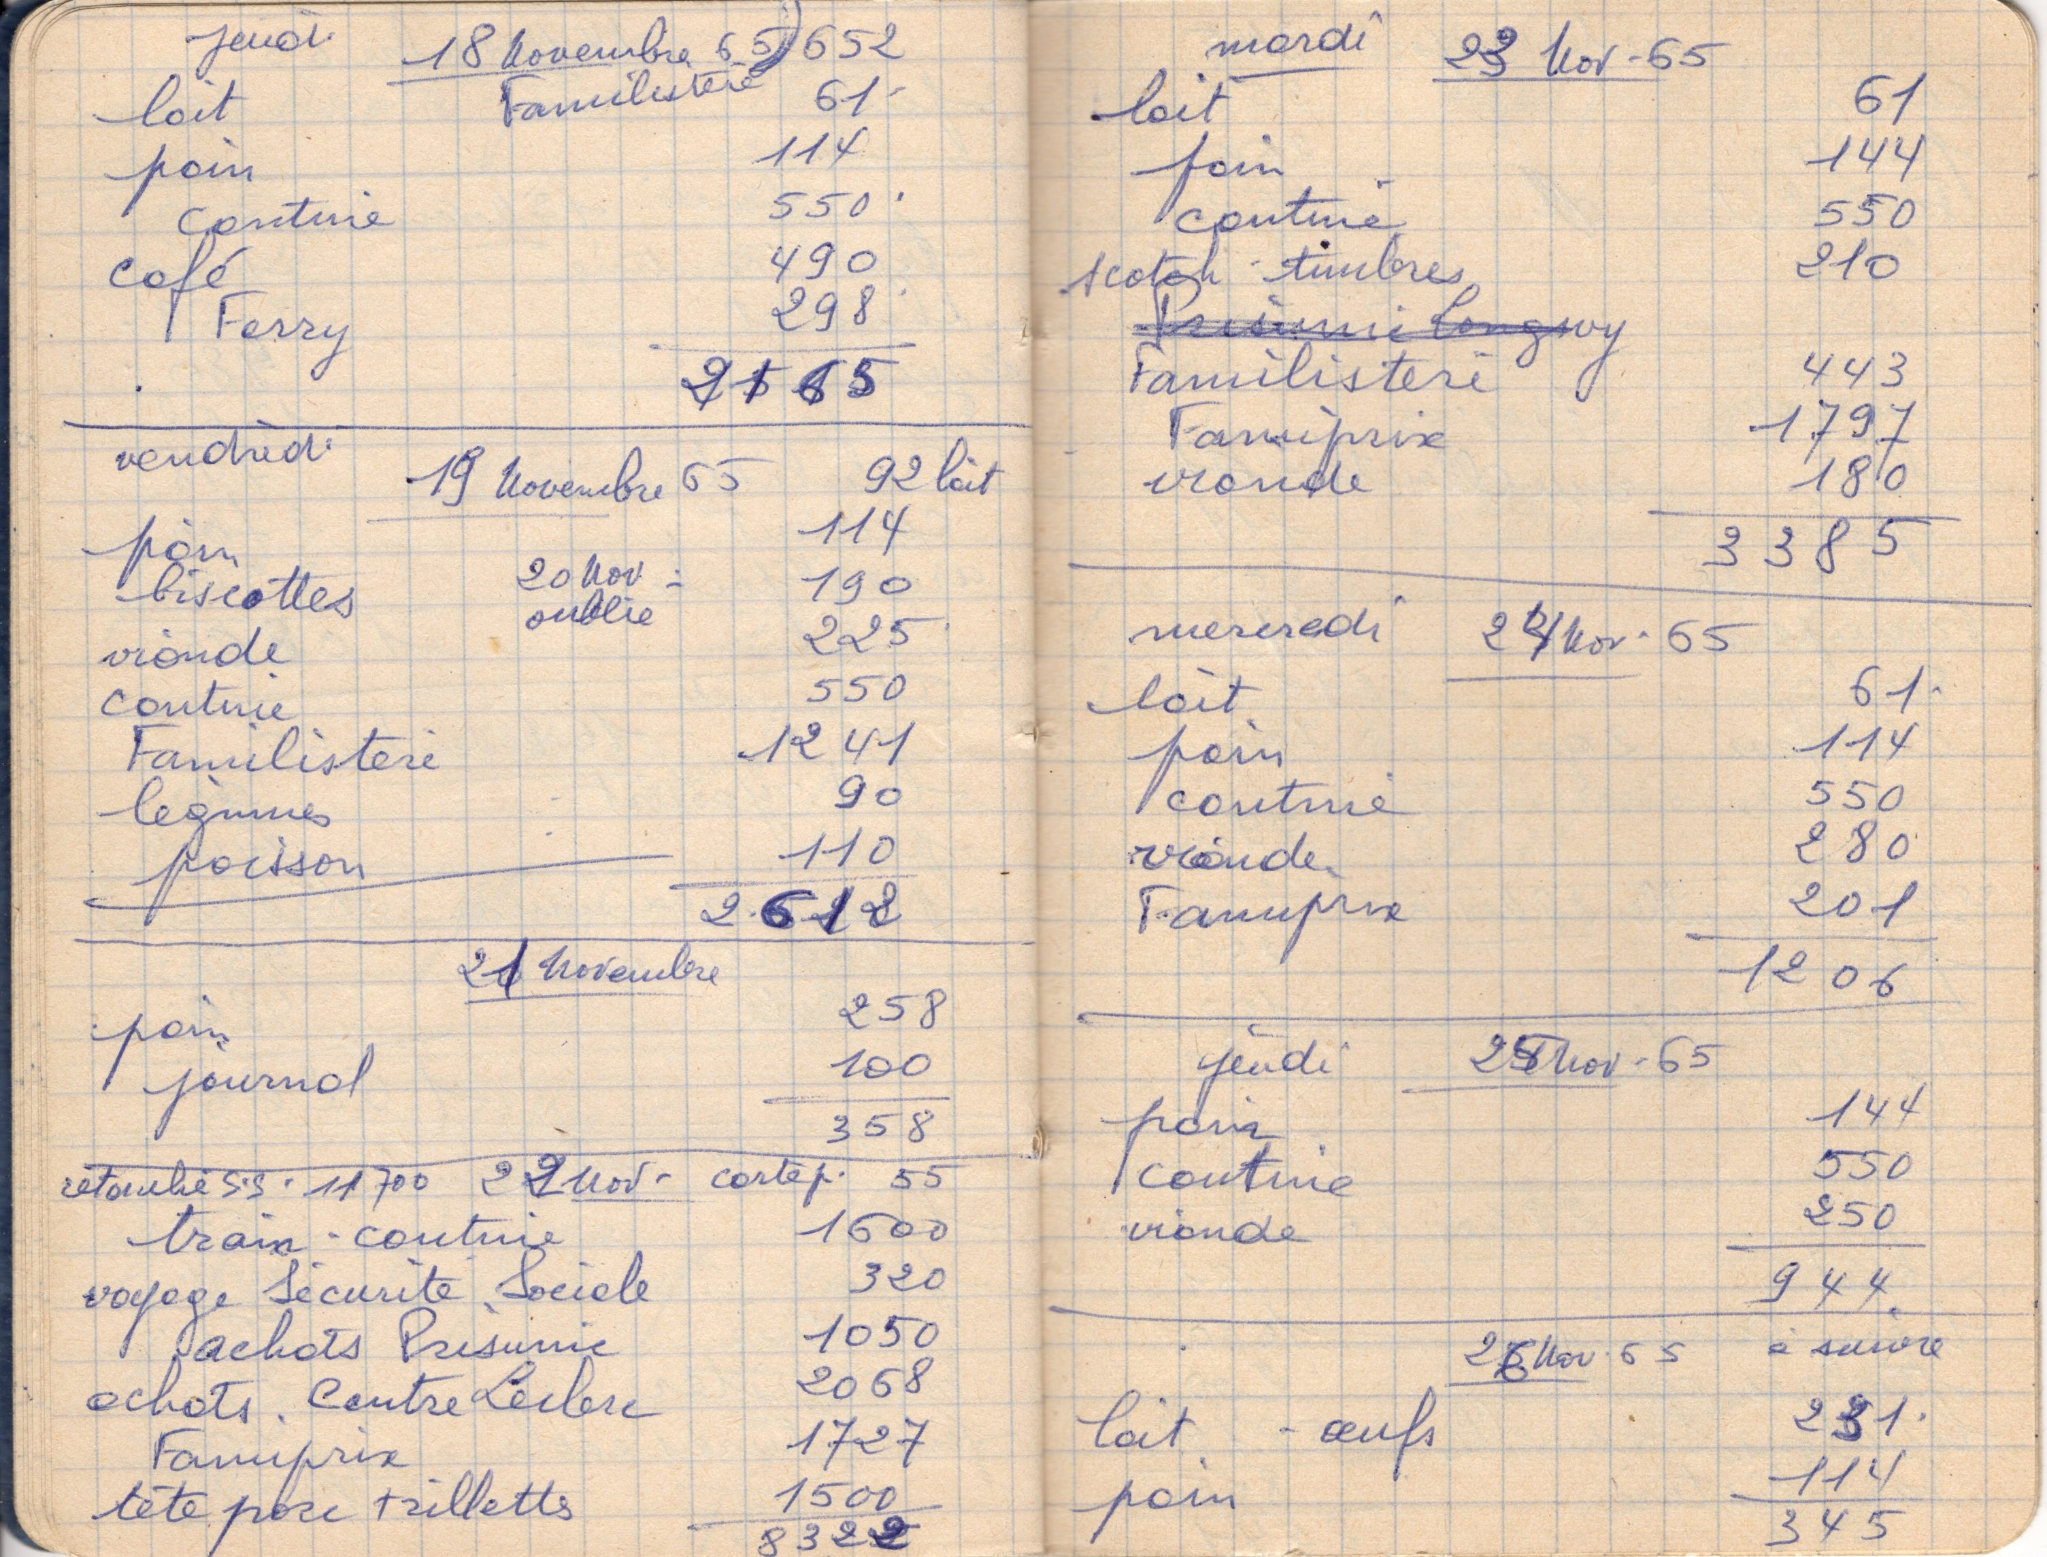 jeudi 18 Novembre 65 652
Familistère
lait 61
pain 114
cantine 550
café 490
Ferry 298
2165
vendredi 19 Novembre 65 92 lait
pain 114
biscottes 20 Nov oublié 190
viande 225
cantine 550
Familistère 1241
légumes 90
poisson 110
2612
21 Novembre
pain 258
journal 100
358
retouché S.S. 11700 22 Nov - carte p. 55
train - cantine 1600
voyage Sécurité Sociale 320
achats Prisunic 1050
achats. Centre Leclerc 2068
Famiprix 1727
tête porc + rilletts 1500
8322
mardi 23 Nov - 65
lait 61
pain 144
cantine 550
scotch - timbres 210
Prisunic Longwy
Familistère 443
Famiprix 1797
viande 180
3385
mercredi 24 Nov - 65
lait 61
pain 114
cantine 550
viande 280
Famiprix 201
1206
jeudi 25 Nov - 65
pain 144
cantine 550
viande 250
944
26 Nov - 65 à suivre
lait - œufs 231
pain 114
345